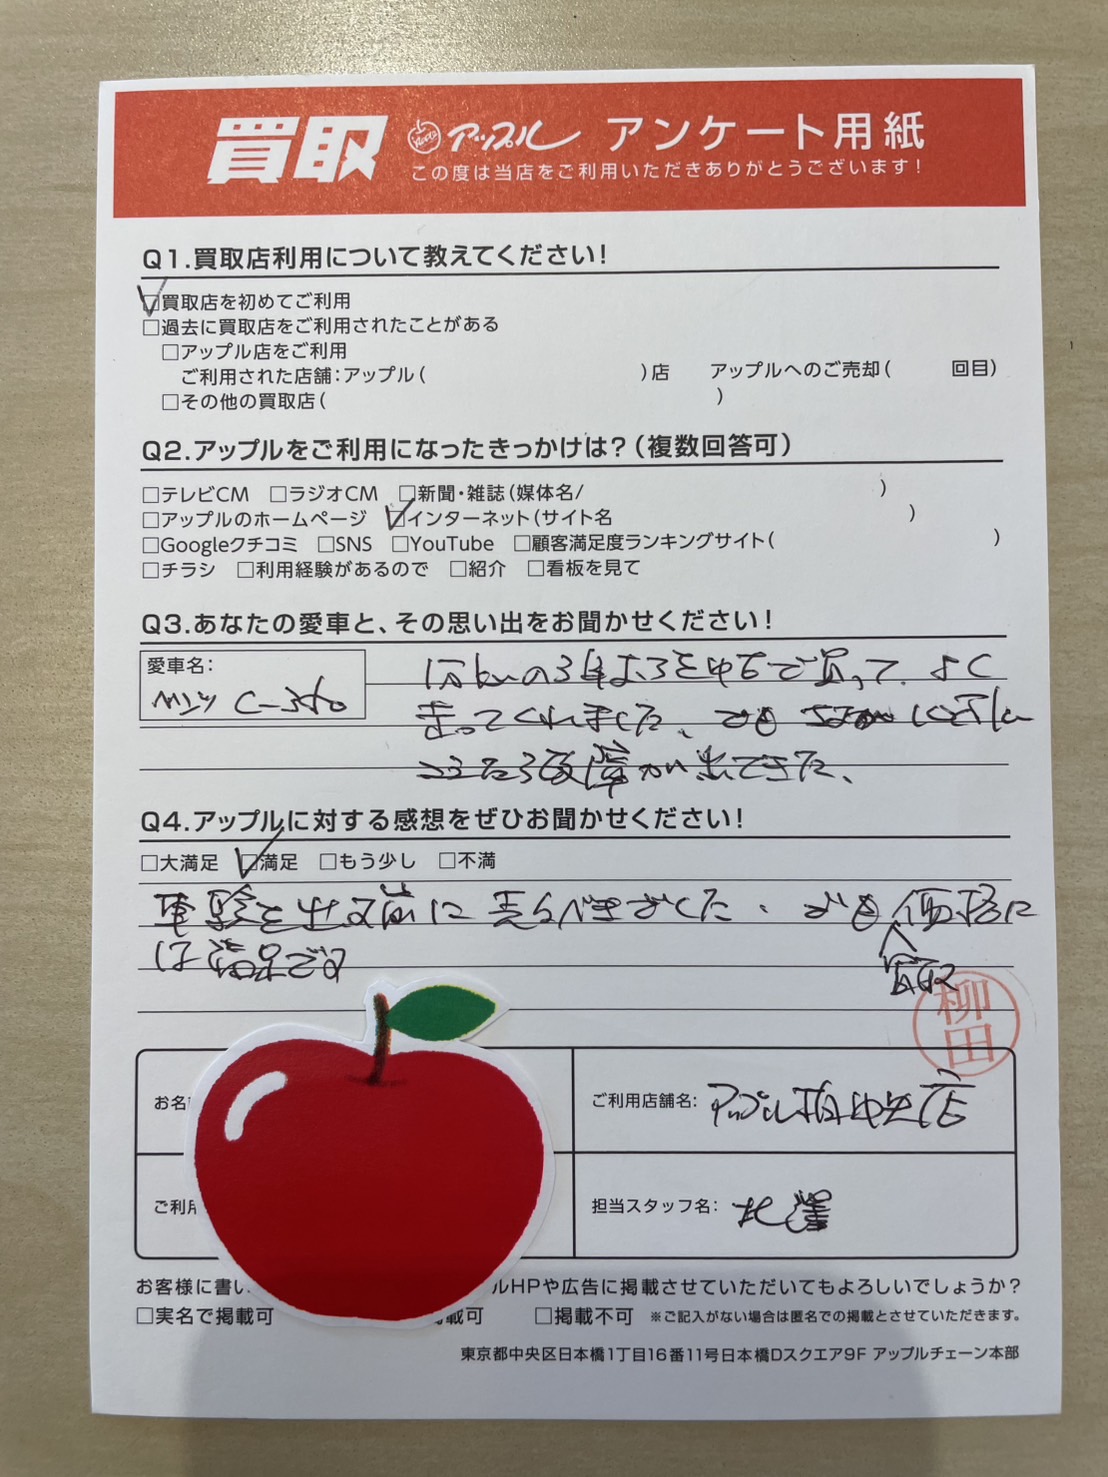 買取 アップル アンケート用紙
この度は当店をご利用いただきありがとうございます!
Q1.買取店利用について教えてください!
□買取店を初めてご利用
□過去に買取店をご利用されたことがある
□アップル店をご利用
ご利用された店舗:アップル( )店 アップルへのご売却( 回目)
□その他の買取店( )
Q2.アップルをご利用になったきっかけは?(複数回答可)
□テレビCM □ラジオCM □新聞・雑誌(媒体名/ )
□アップルのホームページ □インターネット(サイト名 )
□Googleクチコミ □SNS □YouTube □顧客満足度ランキングサイト( )
□チラシ □利用経験があるので □紹介 □看板を見て
Q3.あなたの愛車と、その思い出をお聞かせください!
愛車名:
ベンツ C-350
1万kmの3年おちを中古で買って、よく
走ってくれました、でも
こえたら故障が出てきた、
Q4.アップルに対する感想をぜひお聞かせください!
□大満足 □満足 □もう少し □不満
車験を出す前に売るべきでした、でも 価格に
買取
は満足です
柳田
お名
ご利用店舗名: アップル柏中央店
ご利用
担当スタッフ名: 北澤
お客様に書い ルHPや広告に掲載させていただいてもよろしいでしょうか?
□実名で掲載可 掲載可 □掲載不可 ※ご記入がない場合は匿名での掲載とさせていただきます。
東京都中央区日本橋1丁目16番11号日本橋Dスクエア9F アップルチェーン本部